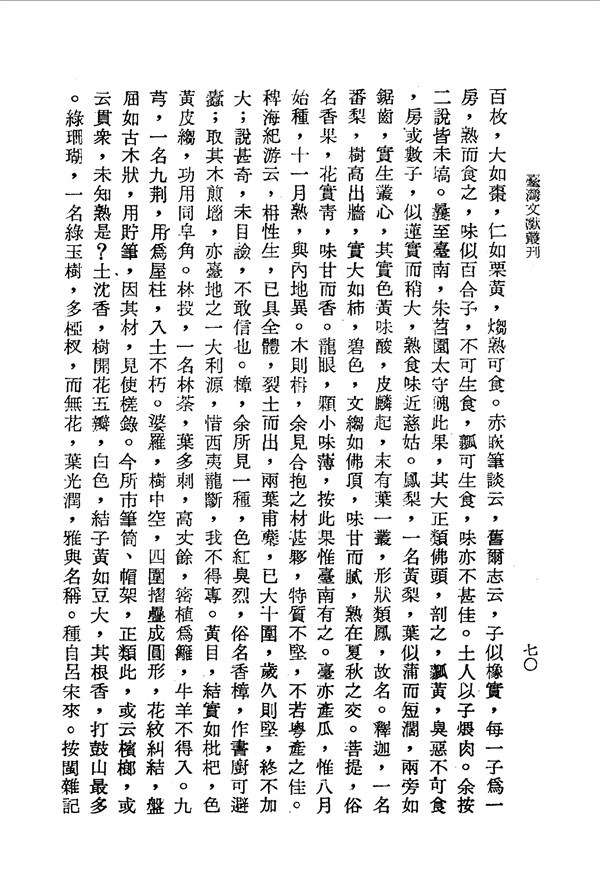 臺灣文獻叢刊
七〇
百枚，大如棗，仁如栗黃，煼熟可食。赤嵌筆談云，舊爾志云，子似橡實，每一子為一
房，熟而食之，味似百合子，不可生食，瓤可生食，味亦不甚佳。土人以子煨肉。余按
二說皆未塙。曩至臺南，朱苕園太守餽此果，其大正類佛頭，剖之，瓤黃，臭惡不可食
，房或數子，似蓮實而稍大，熟食味近慈姑。鳳梨，一名黃梨，葉似蒲而短濶，兩旁如
鋸齒，實生叢心，其實色黃味酸，皮麟起，末有葉一叢，形狀類鳳，故名。釋迦，一名
番梨，樹高出牆，實大如柿，碧色，文縐如佛頂，味甘而膩，熟在夏秋之交。菩提，俗
名香果，花實青，味甘而香。龍眼，顆小味薄，按此果惟臺南有之。臺亦產瓜，惟八月
始種，十一月熟，與內地異。木則枏，余見合抱之材甚夥，特質不堅，不若粵產之佳。
稗海紀游云，枏性生，已具全體，裂土而出，兩葉甫蘗，已大十圍，歲久則堅，終不加
大；說甚奇，未目譣，不敢信也。樟，余所見一種，色紅臭烈，俗名香樟，作書廚可避
蠹；取其木煎𡺲，亦臺地之一大利源，惜西夷龍斷，我不得專。黃目，結實如枇杷，色
黃皮縐，功用同皁角。林投，一名林荼，葉多刺，高丈餘，密植為籬，牛羊不得入。九
芎，一名九荆，所為屋柱，入土不朽。婆羅，樹中空，四圍摺疊成圓形，花紋糾結，盤
屈如古木狀，用貯筆，因其材，見使槎錄。今所市筆筒、帽架，正類此，或云檳榔，或
云貫衆，未知熟是？土沈香，樹開花五瓣，白色，結子黃如豆大，其根香，打鼓山最多
。綠珊瑚，一名綠玉樹，多椏杈，而無花，葉光潤，雅與名稱。種自呂宋來。按閩雜記